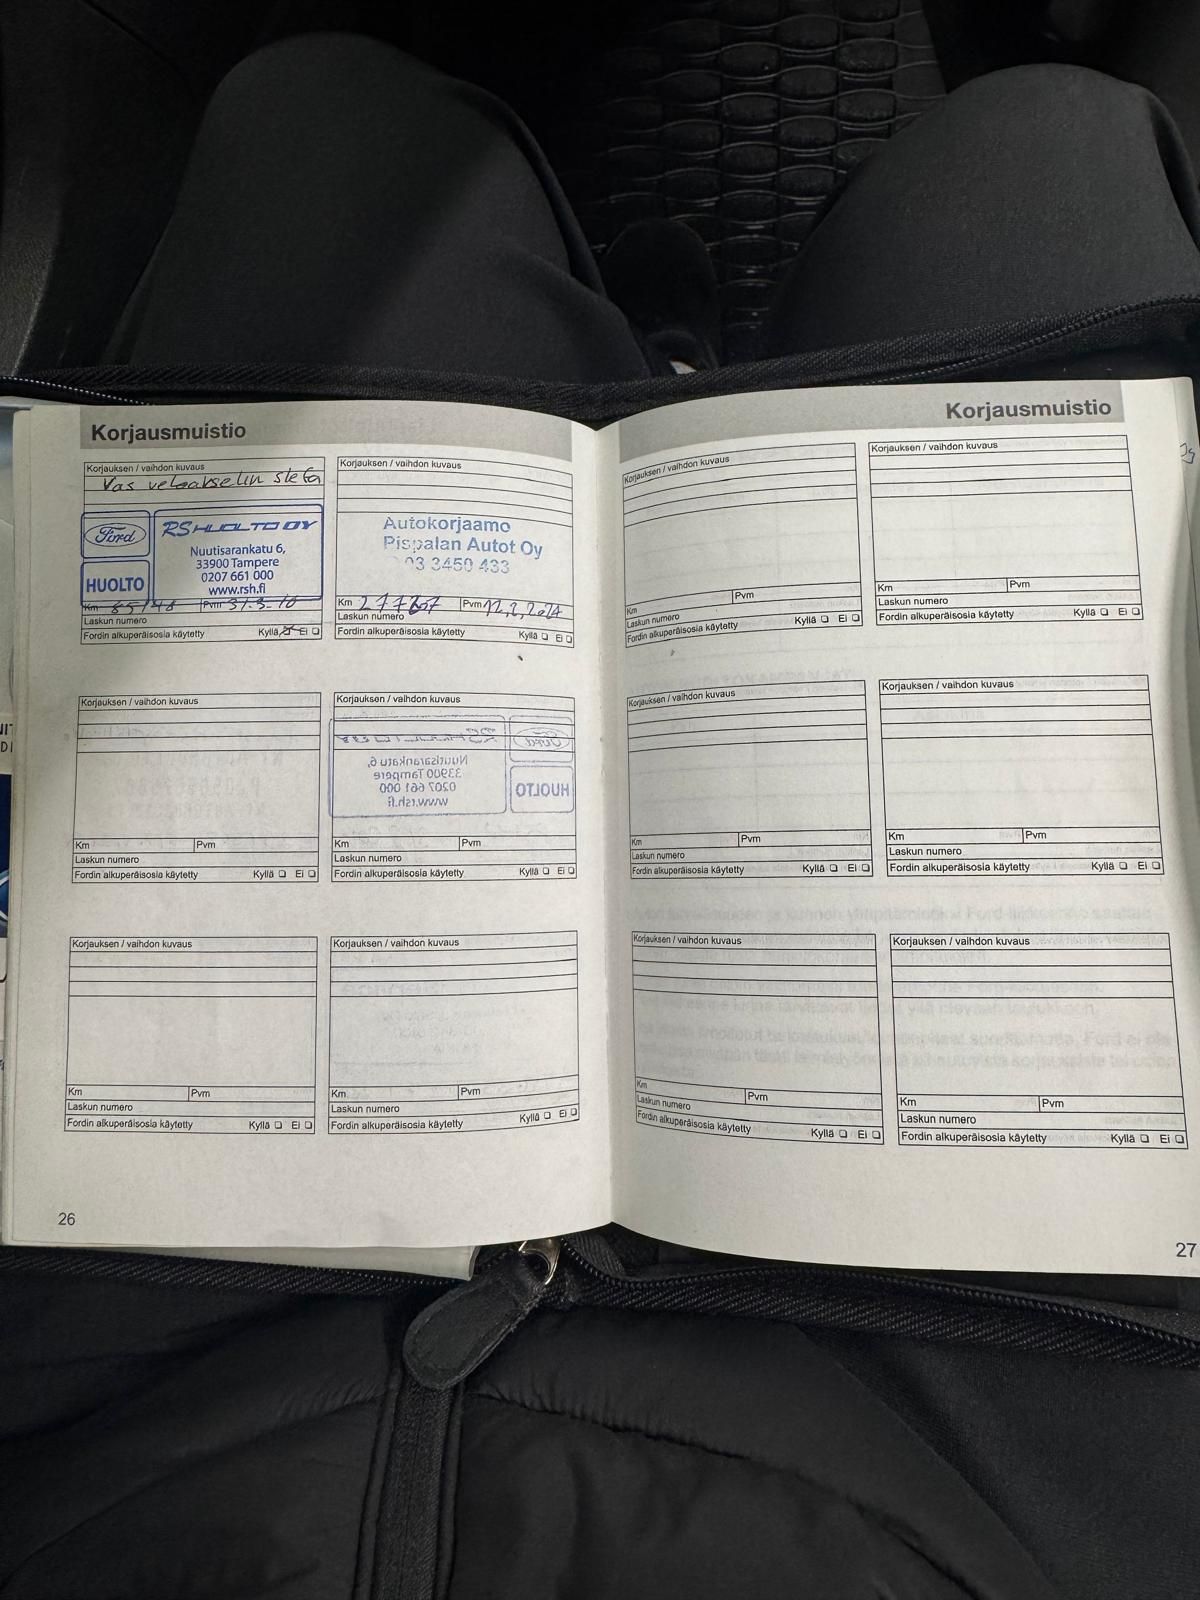 Korjausmuistio
Korjauksen / vaihdon kuvaus
Vas vetoakselin
Ford
HUOLTO
RS HUOLTO OY
Nuutisarankatu 6,
33900 Tampere
0207 661 000
www.rsh.fi
Km Pvm 31.3-10
Laskun numero
Fordin alkuperäisosia käytetty Kyllä Ei
Korjauksen / vaihdon kuvaus
Autokorjaamo
Pispalan Autot Oy
03 3450 433
Km Pvm
Laskun numero
Fordin alkuperäisosia käytetty Kyllä Ei
Korjauksen / vaihdon kuvaus
Km Pvm
Laskun numero
Fordin alkuperäisosia käytetty Kyllä Ei
Korjauksen / vaihdon kuvaus
Ford
HUOLTO
Nuutisarankatu 6,
33900 Tampere
0207 661 000
www.rsh.fi
Km Pvm
Laskun numero
Fordin alkuperäisosia käytetty Kyllä Ei
Korjauksen / vaihdon kuvaus
Km Pvm
Laskun numero
Fordin alkuperäisosia käytetty Kyllä Ei
Korjauksen / vaihdon kuvaus
Km Pvm
Laskun numero
Fordin alkuperäisosia käytetty Kyllä Ei
26
Korjausmuistio
Korjauksen / vaihdon kuvaus
Km Pvm
Laskun numero
Fordin alkuperäisosia käytetty Kyllä Ei
Korjauksen / vaihdon kuvaus
Km Pvm
Laskun numero
Fordin alkuperäisosia käytetty Kyllä Ei
Korjauksen / vaihdon kuvaus
Km Pvm
Laskun numero
Fordin alkuperäisosia käytetty Kyllä Ei
Korjauksen / vaihdon kuvaus
Km Pvm
Laskun numero
Fordin alkuperäisosia käytetty Kyllä Ei
Korjauksen / vaihdon kuvaus
Km Pvm
Laskun numero
Fordin alkuperäisosia käytetty Kyllä Ei
Korjauksen / vaihdon kuvaus
Km Pvm
Laskun numero
Fordin alkuperäisosia käytetty Kyllä Ei
27